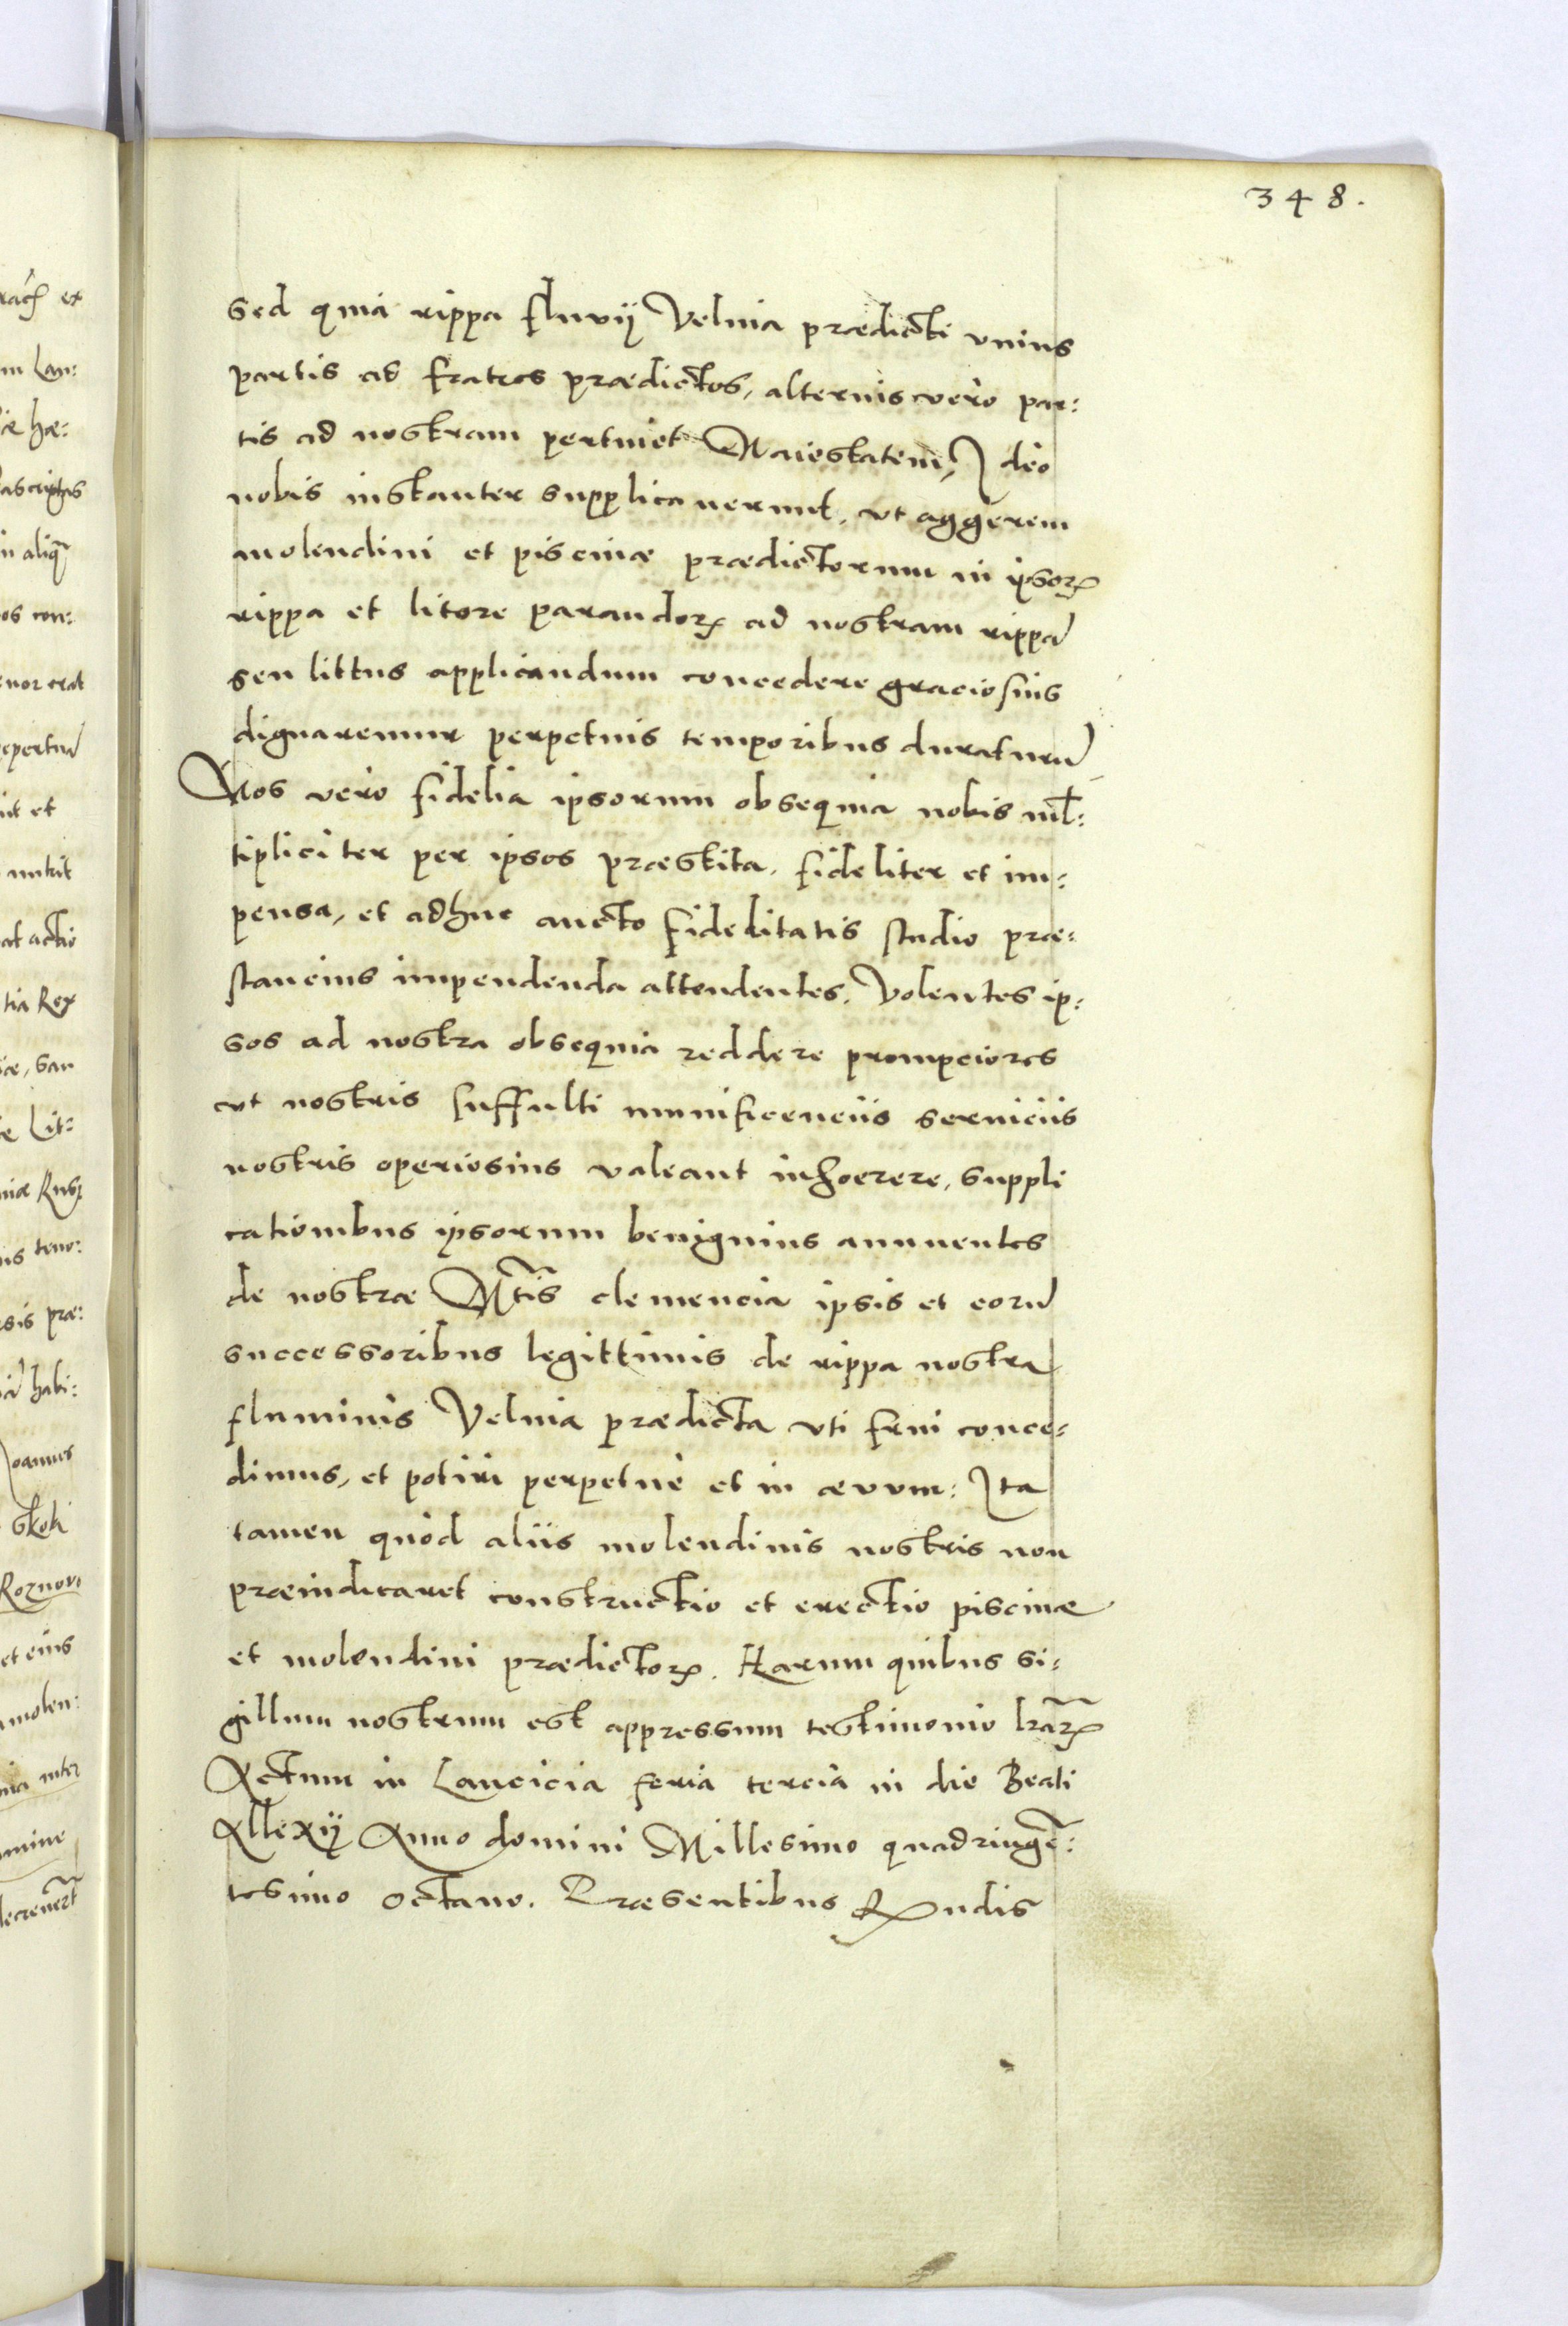 348.
sed quia rippa fluvij Velnia prædicti vnius
partis ad fratres prædictos, alternis vero par:
tis ad nostram pertinet Maiestatem, Ideo
nobis instanter supplicauerunt, vt aggerem
molendini et piscinæ prædictorum in ipsoꝝ
rippa et litore parandoꝝ ad nostram rippā
seu littus applicandum concedere graciosius
dignaremur perpetuis temporibus duraturū
Nos vero fidelia ipsorum obsequia nobis ml̄:
tipliciter per ipsos præstita, fideliter et im:
pensa, et adhuc aucto fidelitatis studio præ:
stancius impendenda attendentes, Volentes ip:
sos ad nostra obsequia reddere prompciores
vt nostris suffulti munificenciis seruiciis
nostris operiosius valeant inhærere, suppli
cationibus ipsorum benignius annuentes
de nostræ Mtis̄ clemencia ipsis et eorū
successoribus legittimis de rippa nostra
fluminis Velnia prædicta vti frui conce:
dimus, et potiri perpetuè et in ævvm: Ita
tamen quòd aliis molendinis nostris non
præiudicaret constructio et erectio piscinæ
et molendini prædictoꝝ. Harum quibus si:
gillum nostrum est appressum testimonio lrāꝝ
Actum in Lancicia feria tercia in die Beati
Allexij Anno domini Millesimo quadringē:
tesimo octauo. Præsentibus Rndis
rach ex
m Lan:
æ hæ:
ascriptas
in aliq̃
os con:
enor erat
epertū
it et
at actio
tia Rex
æ, san
e Lit:
iæ Rus
is teno:
sis præ:
ā habi:
Joannes
skoki
Roznovi
et eius
molen:
mine
decreuerūt